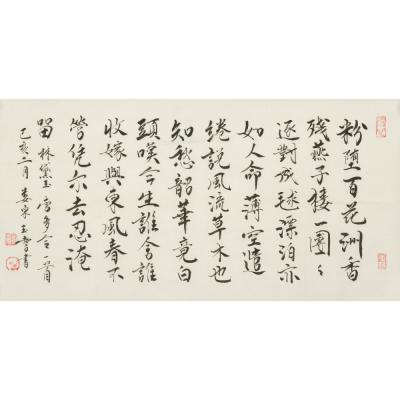 粉堕百花洲香
残燕子楼一團〻
逐對成毬漂泊亦
如人命薄空遣
綣說風流草木也
知愁韶華竟白
頭嘆今生誰舍誰
收嫁與東風春不
管凭尓去忍淹
留 林黛玉唐多令一首
己亥二月 娄東玉書